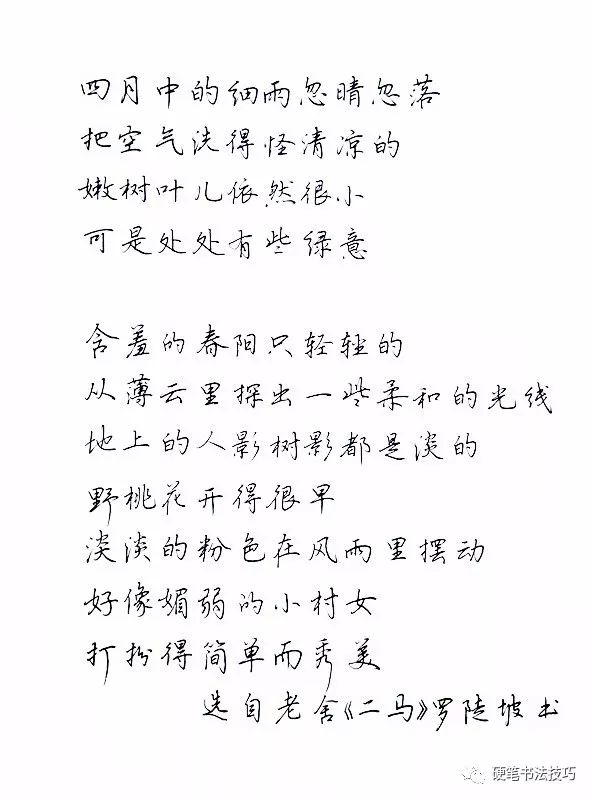 四月中的细雨忽晴忽落
把空气洗得怪清凉的
嫩树叶儿依然很小
可是处处有些绿意
含羞的春阳只轻轻的
从薄云里探出一些柔和的光线
地上的人影树影都是淡的
野桃花开得很早
淡淡的粉色在风雨里摆动
好像媚弱的小村女
打扮得简单而秀美
选自老舍《二马》罗陡坡书
硬笔书法技巧